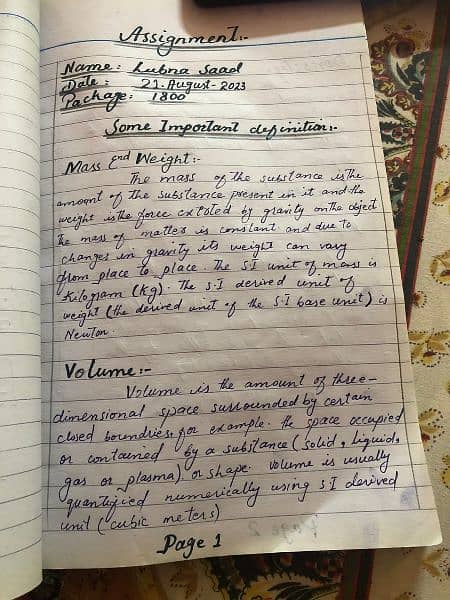 Assignment:-
Name: Lubna Saad
Date: 21-August-2023
Package: 1800
Some Important definition:-
Mass End Weight:-
The mass of the substance is the
amount of the substance present in it and the
weight is the force extoled by gravity on the object
the mass of matter is constant and due to
changes in gravity its weight can vary
from place to place. The S.I unit of mass is
Kilogram (Kg). The S.I derived unit of
weight (the derived unit of the S.I base unit) is
Newton.
Volume:-
Volume is the amount of three-
dimensional space surrounded by certain
closed boundries, for example. the space occupied
or contained by a substance (solid, liquid,
gas or plasma) or shape. volume is usually
quantified numerically using S.I derived
unit (cubic meters)
Page 1